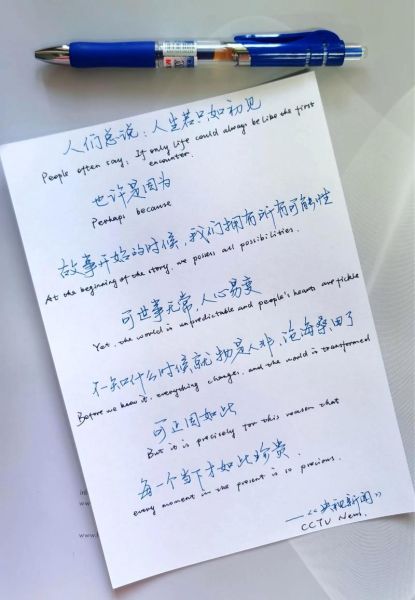 人们总说：人生若只如初见
People often say: If only life could always be like the first
encounter.
也许是因为
Perhaps because
故事开始的时候，我们拥有所有可能性
At the beginning of the story, we possess all possibilities.
可世事无常，人心易变
Yet, the world is unpredictable and people's hearts are fickle
不知什么时候就物是人非、沧海桑田了
Before we know it, everything changes, and the world is transformed
可正因如此
But it is precisely for this reason that
每一个当下才如此珍贵.
every moment in the present is so precious.
——《央视新闻》
CCTV News.